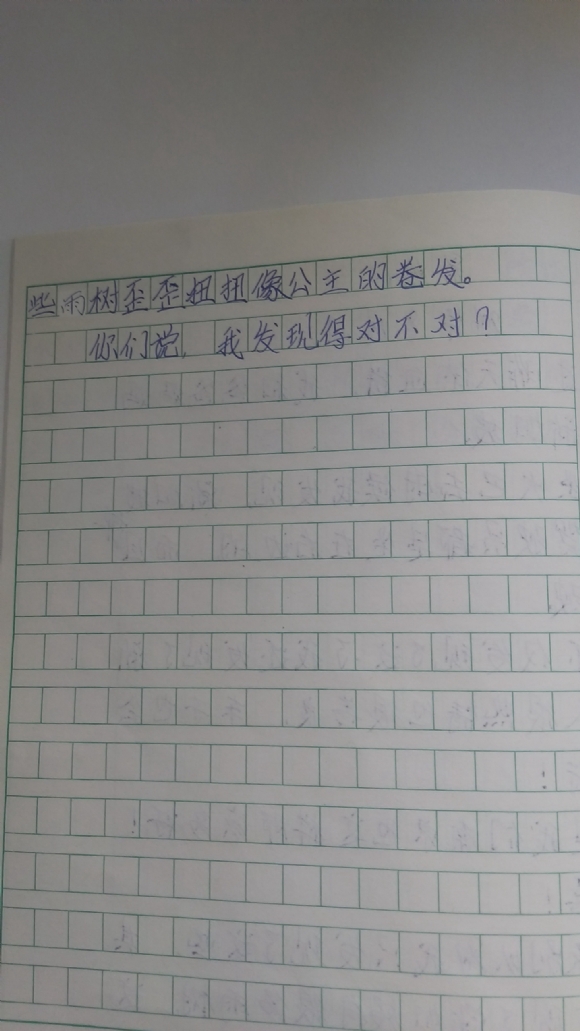 些雨树歪歪扭扭像公主的卷发。
你们说，我发现得对不对？